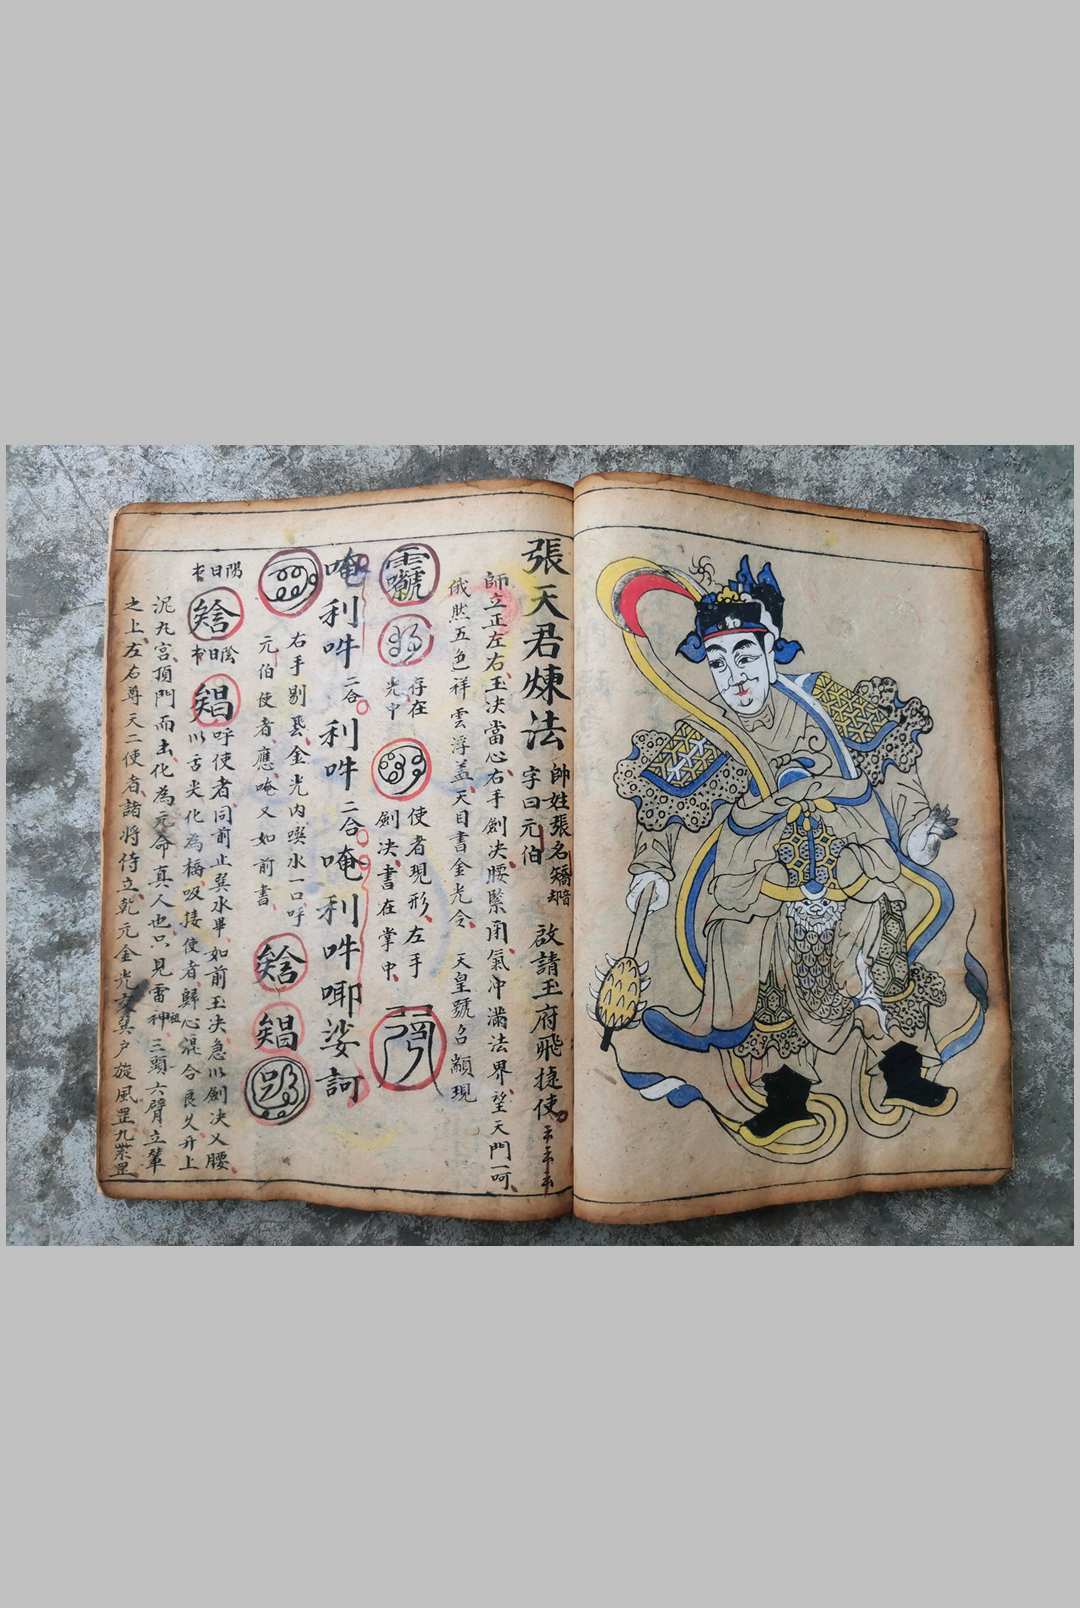 張天君煉法
帥姓張名
字曰元伯
啟請玉府飛捷使云云云
師立正左右玉决當心右手劍决腰緊用氣冲滿法界望天門一呵
俄然五色祥雲浮盖天目書金光令
天皇號召 顯現
存在
光中
使者現形左手
劍决書在掌中
唵利吽二合利吽二合唵利吽唧娑訶
右手剔 金光内噀水一口呼
元伯使者應唵又如前書
陽
日
陰
日
呼使者同前止巽水畢如前玉决急以劍决又腰
以舌尖化為橋吸接使者歸心混合良久升上
泥丸宮頂門而出化為元命真人也只見雷神三頭六臂立輦
之上左右尊天二使者諸將侍立乾元金光 巽户旋風罡九炁罡